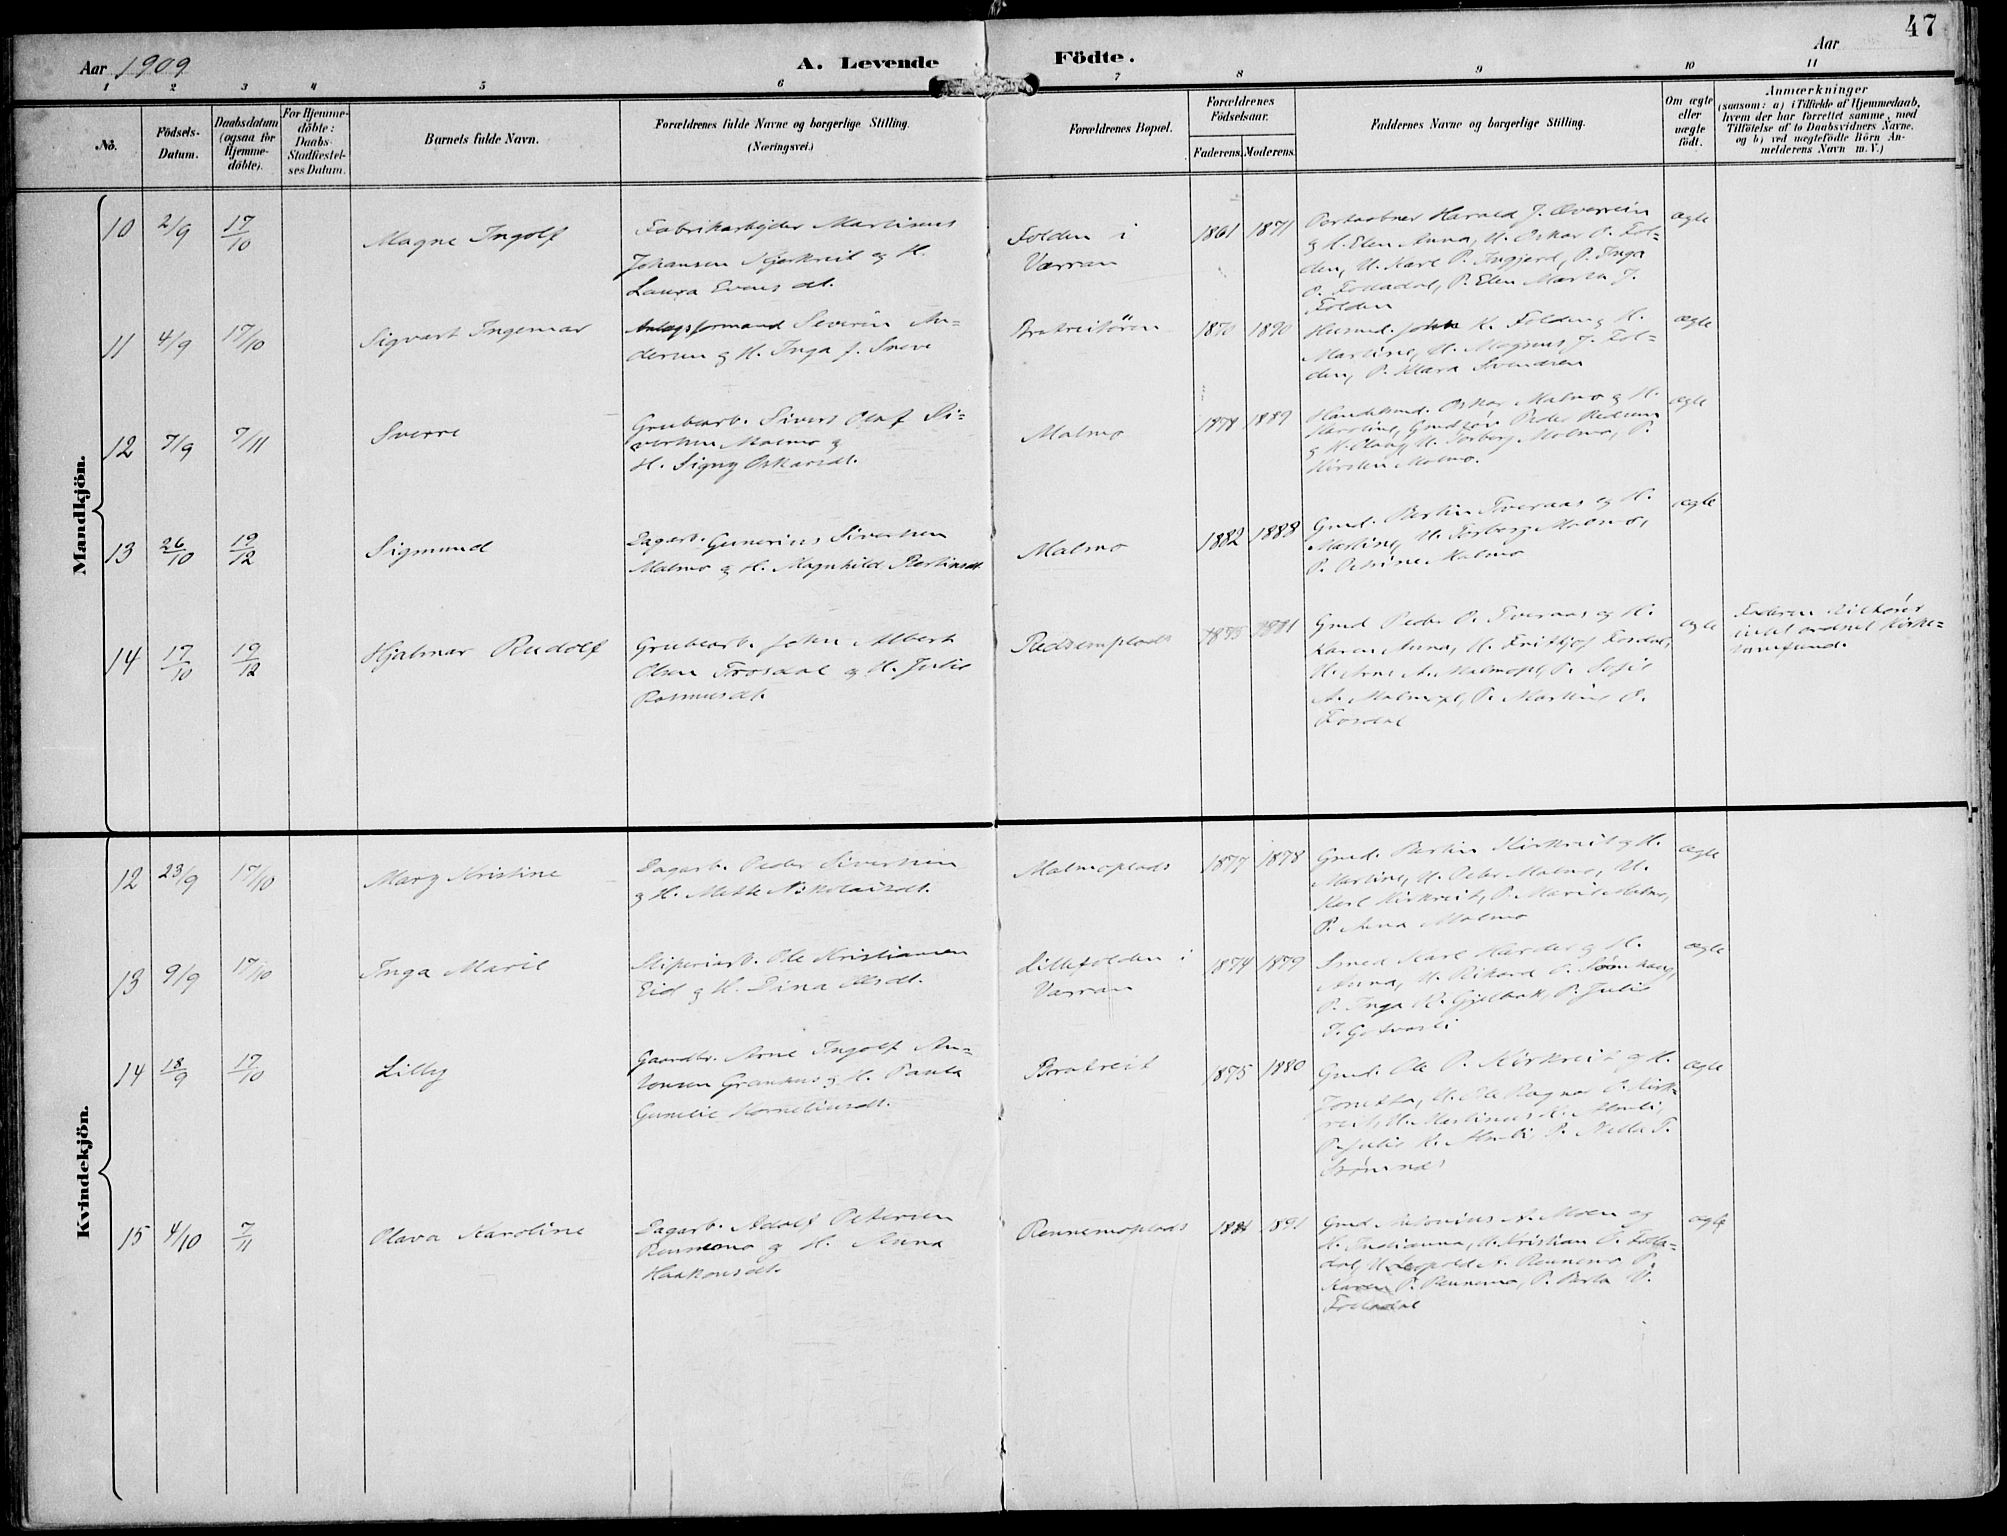 47
Aar 1909
A. Levende Födte.
Aar
1 2 3 4 5 6 7 8 9 10 11
No.
Födsels-Datum.
Daabsdatum (ogsaa for Hjemme-döbte).
For Hjemme-döbte: Daabs-Stadfæstel-ses Datum.
Barnets fulde Navn.
Forældrenes fulde Navne og borgerlige Stilling. (Næringsvei.)
Forældrenes Bopæl.
Forældrenes Födselsaar.
Faderens. Moderens.
Faddernes Navne og borgerlige Stilling.
Om ægte eller uægte födt.
Anmærkninger
(saasom: a) i Tilfælde af Hjemmedaab, hvem der har forrettet samme, med Tilföielse af to Daabsvidners Navne, og b) ved uægtefödte Börn An-melderens Navn m. V.)
Mandkjön.
10 2/9 17/10
Magne Ingolf
Fabrikarbeider Martinus
Johansen og H.
Laura Evensdt.
Folden i
Værran
1861 1871
Harald J.
& H. Elen Anna, U. Oskar P. Fol-
den, U. Karl P. P. Inga
P. Folladal, P. Elen Marta J.
Folden
ægte
11 4/9 17/10
Sigvart Ingemar
Anlægsformand Severin An-
dersen & H. Inga J. Sneve
1870 1890
Husmd. John K. Folden & H.
Martine, U. Magnus J. Fol-
den, P. Klara Svendsen
ægte
12 7/9 7/11
Sverre
Grubearb. Sivert Olaf Si-
vertsen Malmo &
H. Signy Oskarsdt.
Malmo
1889
Oskar Malmo & H.
Karoline, Peder
& H. Olava, U. Torberg Malmo, P.
Kirsten Malmo.
ægte
13 26/10 19/12
Sigmund
Dagarb. Gunerius Sivertsen
Malmo & H. Magnhild Bertinsdt.
Malmo
1882 1888
Gmd. Bertin Tveraas & H.
Martine, U. Torberg Malmo,
P. Petrine Malmo
ægte
14 17/10 19/12
Hjalmar Rudolf
Grubearb. John Albert
Olsen Frosdal & H. Julie
Rasmusdt.
1875 1881
Gmd Peder P. Tveraas & H.
Karen Anna, U. Frithjof Fosdal,
U. Arne A. Malmopl, P. Sofie
A. Malmopl, P. Martine O.
Fosdal
ægte
Faderen tilhører
intet ordnet Kirke-
samfund.
Kvindekjön.
12 23/9 17/10
Mary Kristine
Dagarb. Peder Sivertsen
& H. Mette Nikolaisdt.
Malmoplads
1877 1878
Gmd. Bertin Kirkreit & H.
Martine, U. Peter Malmo, U.
Karl Kirkreit, P. Marit Malmo,
P. Anna Malmo
ægte
13 9/9 17/10
Inga Marie
Sliperiarb. Ole Kristiansen
Eid & H. Dina Olsdt.
Lillefolden i
Værran
1874 1879
Smed Karl Harder & H.
Anna, U. Rikard P.
P. Inga P. Julie
J.
ægte
14 18/9 17/10
Lilly
Gaardbr. Arne Ingolf An-
tonsen Granhus & H. Paula
Gunelie Korneliusdt.
Bratreit
1875 1880
Gmd. Ole P. Kirkreit & H.
Jonetta, U. Ole Ragnar P. Kirk-
reit, U. Martinus K.
P. Julie K. P. Nella T.
ægte
15 4/10 7/11
Olava Karoline
Dagarb. Adolf Petersen
Rennemo & H. Anna
Haakonsdt.
Rennemoplads
1884 1891
Gmd Antonius A. Moen og
H. Indianna, U. Kristian P. Folla-
dal, U. Leopold A. Rennemo, P.
Karen P. Rennemo, P. Berta P.
Folladal
ægte